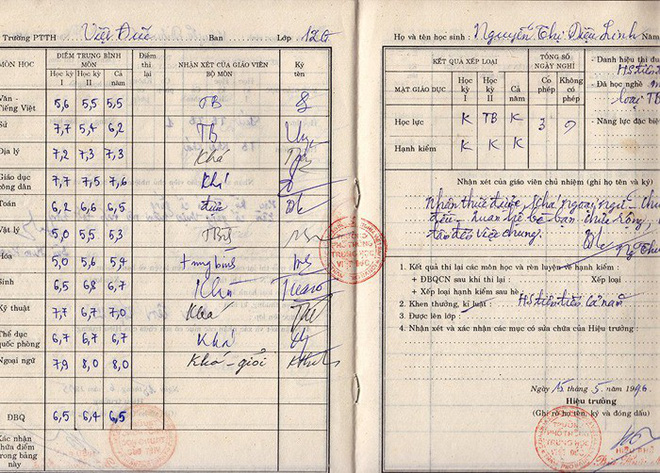 Trường PTTH Việt Đức Ban Lớp 12G
MÔN HỌC
ĐIỂM TRUNG BÌNH MÔN
Học kỳ I
Học kỳ II
Cả năm
Điểm thi lại
NHẬN XÉT CỦA GIÁO VIÊN BỘ MÔN
Ký tên
Văn - Tiếng Việt 5,6 5,5 5,5 TB
Sử 7,7 5,4 6,2 TB
Địa lý 7,2 7,3 7,3 Khá
Giáo dục công dân 7,7 7,5 7,6 Khá
Toán 6,2 6,6 6,5
Vật lý 5,0 5,5 5,3
Hóa 5,0 5,6 5,4
Sinh 6,5 6,8 6,7 Khá
Kỹ thuật 7,7 6,7 7,0 Khá
Thể dục quốc phòng 6,7 6,7 6,7 Khá
Ngoại ngữ 7,9 8,0 8,0 Khá - giỏi
ĐBQ 6,5 6,4 6,5
Xác nhận
chữa điểm
trong bảng
này
Họ và tên học sinh: Nguyễn Thị Diệu Linh
KẾT QUẢ XẾP LOẠI
TỔNG SỐ NGÀY NGHỈ
MẶT GIÁO DỤC
Học kỳ I
Học kỳ II
Cả năm
Có phép
Không có phép
Học lực K TB K 3
Hạnh kiểm K K K
- Danh hiệu thi đu
- Đã học nghề
loại TB
- Năng lực đặc biệ
Nhận xét của giáo viên chủ nhiệm (ghi họ tên và ký)
Nhận thức được, khá ngoại ngữ.
đều. Quan hệ bè bạn
đến việc chung.
1. Kết quả thi lại các môn học và rèn luyện về hạnh kiểm:
+ ĐBQCN sau khi thi lại:
+ Xếp loại hạnh kiểm sau hè
2. Khen thưởng, kỉ luật: HS tiên tiến cả năm
3. Được lên lớp:
4. Nhận xét và xác nhận các mục có sửa chữa của Hiệu trưởng:
Ngày 15 tháng 5 năm 1996
Hiệu trưởng
(Ghi rõ họ tên, ký và đóng dấu)
TRƯỜNG
PHỔ THÔNG
TRUNG HỌC
VIỆT ĐỨC